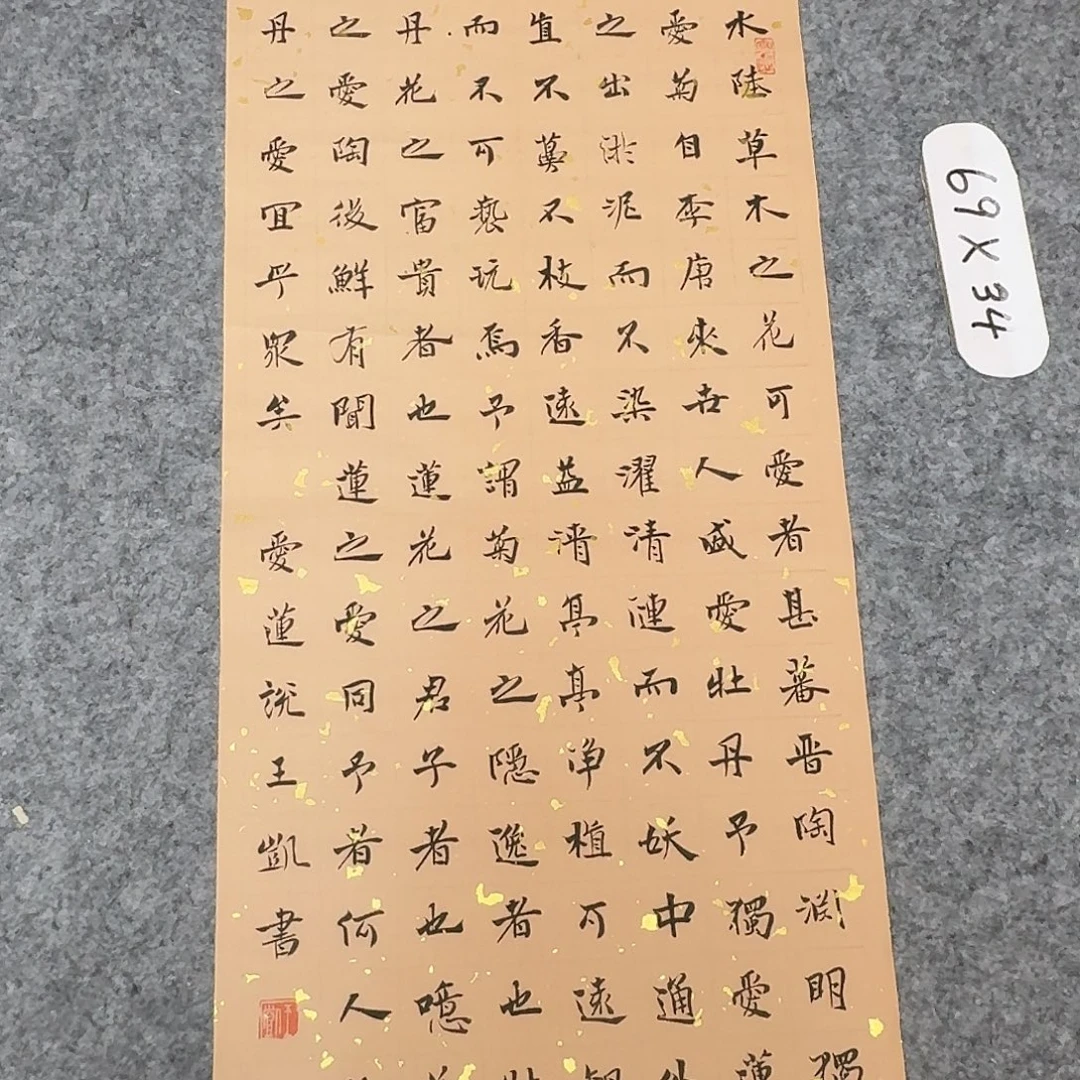 水陸草木之花可愛者甚蕃晋陶渊明獨
愛菊自李唐來世人盛愛牡丹予獨愛蓮
之出淤泥而不染濯清漣而不妖中通外
直不蔓不枝香遠益清亭亭净植可遠觀
而不可亵玩焉予謂菊花之隱逸者也牡
丹花之富貴者也蓮花之君子者也噫
之愛陶後鮮有聞蓮之愛同予者何人
丹之愛宜乎眾矣 愛蓮説王凱書
69X34